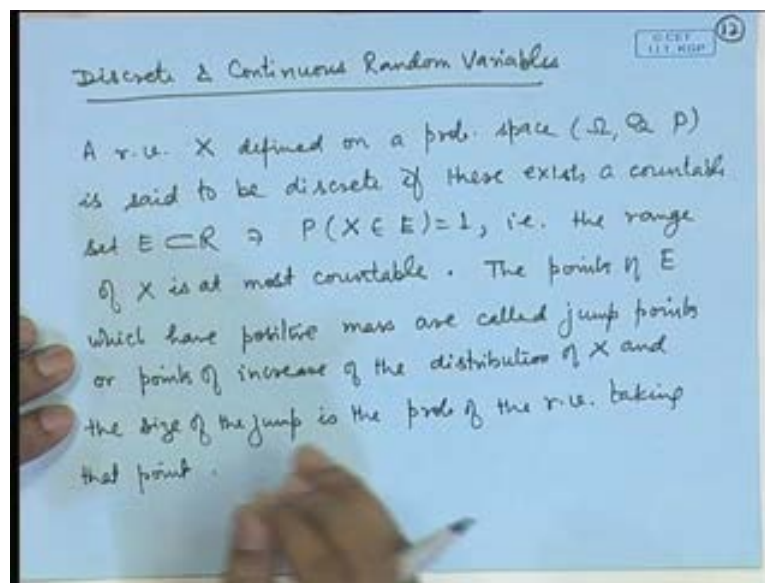 12
C CET
I.I.T. KGP
Discrete & Continuous Random Variables
A r.v. X defined on a prob. space (Ω, Q P)
is said to be discrete if there exists a countable
set E ⊂ R ∋ P(X ∈ E) = 1, i.e. the range
of X is at most countable. The points of E
which have positive mass are called jump points
or points of increase of the distribution of X and
the size of the jump is the prob of the r.v. taking
that point.